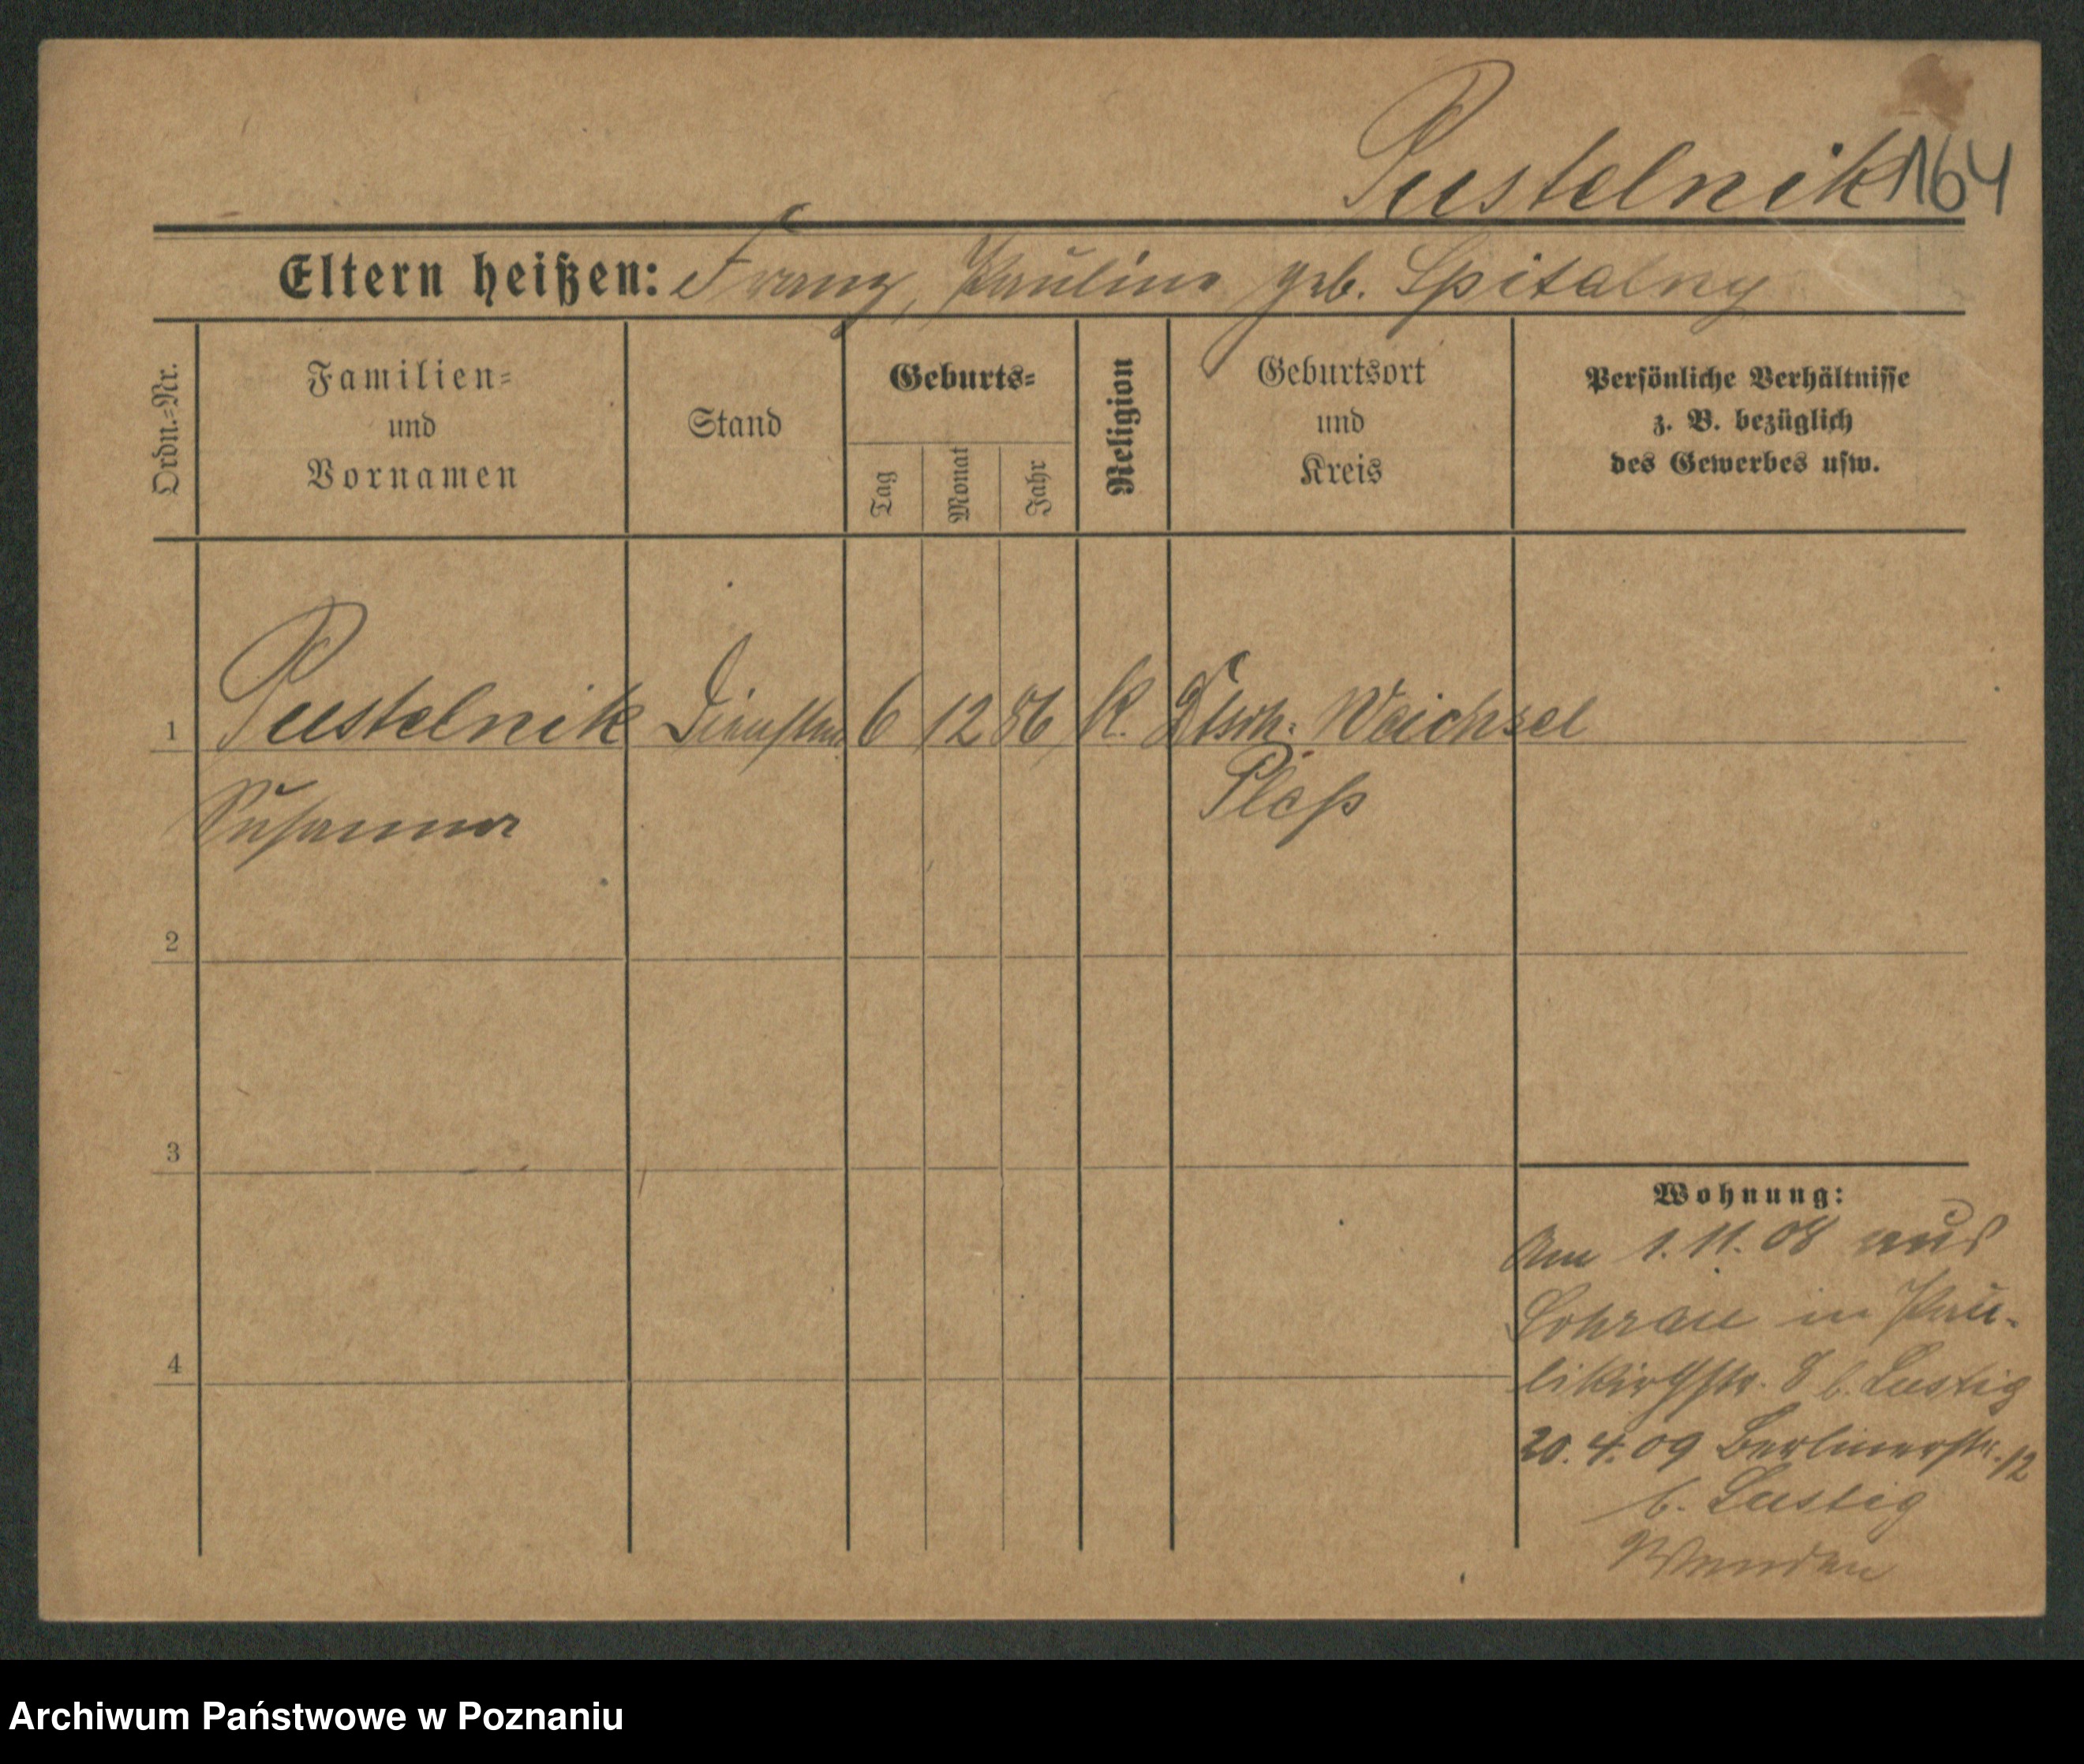 Pustelnik 164
Eltern heißen: Franz, Pauline geb. Spitalny
Ordn.=Nr.
Familien=
und
Vornamen
Stand
Geburts=
Tag
Monat
Jahr
Religion
Geburtsort
und
Kreis
Persönliche Verhältnisse
z. B. bezüglich
des Gewerbes usw.
1 Pustelnik 6 12 86 K. Dtsch. Weichsel
Susanna Pleß
2
3
4
Wohnung:
Am 1. 11. 08 aus
Sohrau in Pau-
likirchstr. 8 b. Lustig
20. 4. 09 Berlinerstr. 12
b. Lustig
Wenden
Archiwum Państwowe w Poznaniu